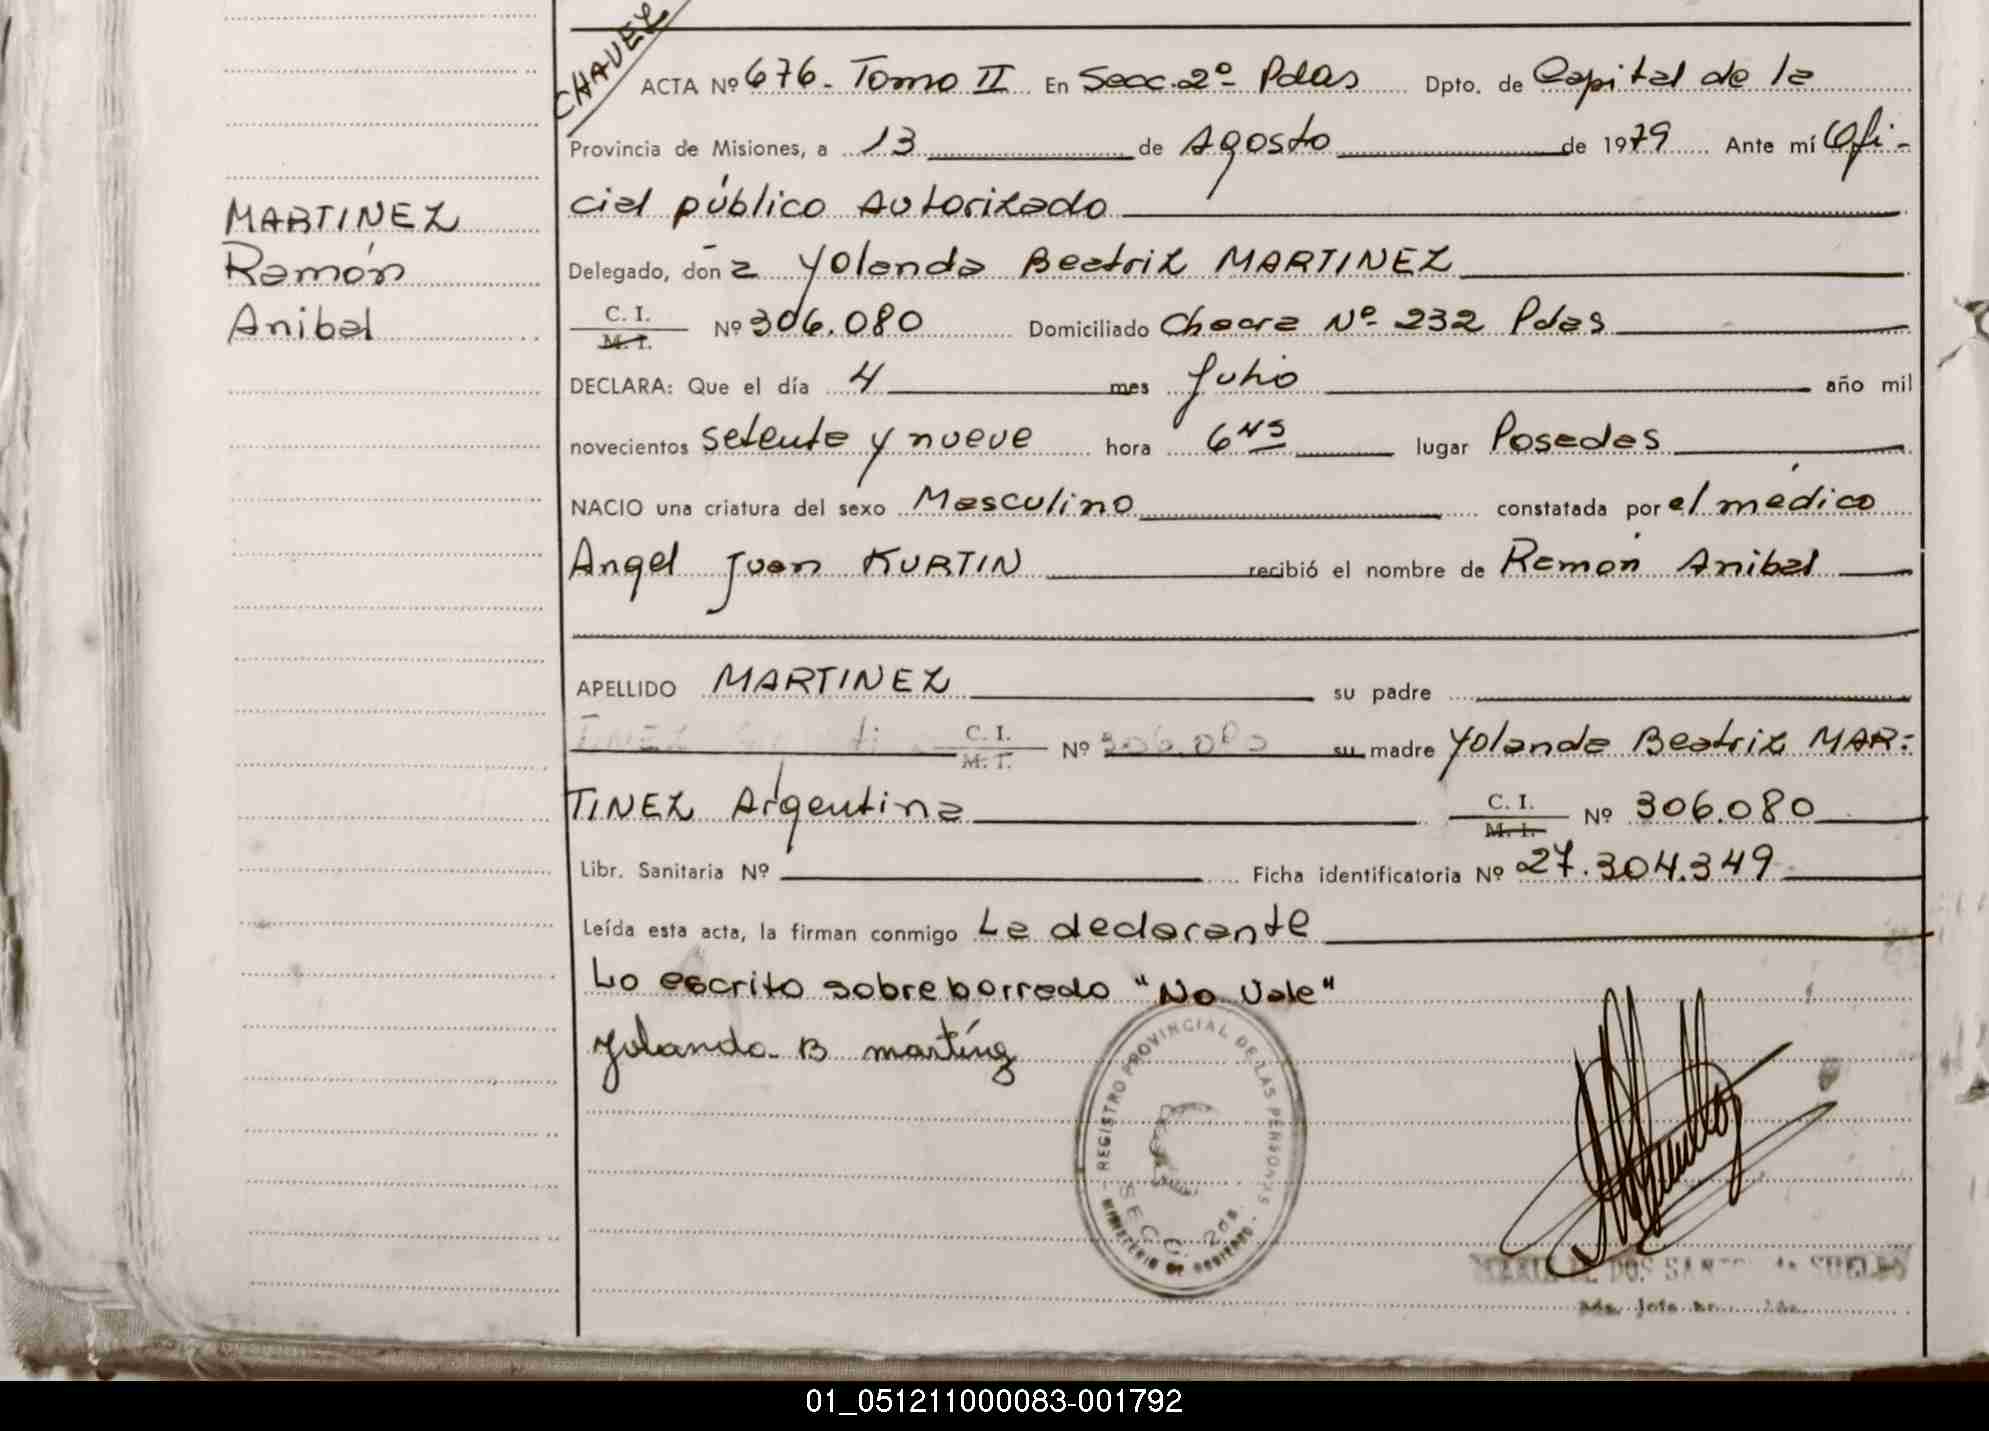 CHAVEZ
ACTA Nº 676. Tomo II En Secc. 2º Pdas Dpto. de Capital de la
Provincia de Misiones, a 13 de Agosto de 1979 Ante mí Ofi-
cial público Autorizado
Delegado, don a Yolanda Beatriz MARTINEZ
C. I.
M. I.
Nº 306.080 Domiciliado Chacra Nº 232 Pdas
DECLARA: Que el día 4 mes Julio año mil
novecientos setenta y nueve hora 6 45 lugar Posadas
NACIO una criatura del sexo Masculino constatada por el médico
Angel Juan KURTIN recibió el nombre de Ramón Anibal
APELLIDO MARTINEZ su padre
C. I.
M. I.
Nº 306.080 su madre Yolanda Beatriz MAR-
TINEZ Argentina
C. I.
M. I.
Nº 306.080
Libr. Sanitaria Nº Ficha identificatoria Nº 27.304.349
Leída esta acta, la firman conmigo La declarante
Lo escrito sobre borrado "No Vale"
Yolanda B martinez
MARTINEZ
Ramón
Anibal
REGISTRO PROVINCIAL DE LAS PERSONAS
SECC. 2da.
MINISTERIO DE GOBIERNO
01_051211000083-001792